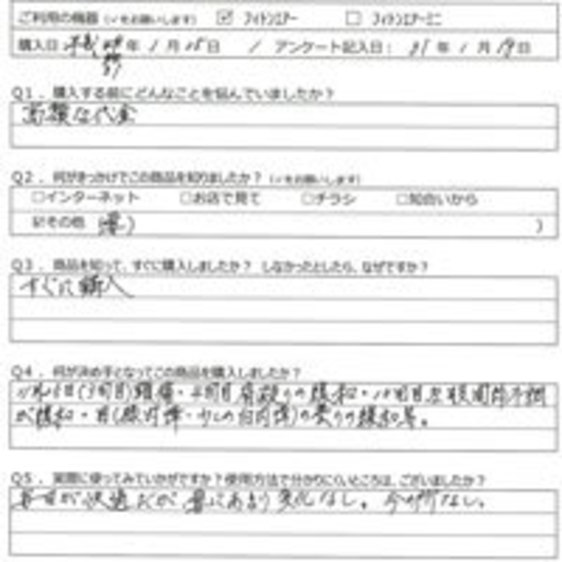 ご利用の機器（✓をお願いします） ☑ フィトンエアー □ フィトンエアーミニ
購入日 平成 年 1月15日 / アンケート記入日： 31年 1月19日
31
Q1．購入する前にどんなことを悩んでいましたか？
高額な代金
Q2．何がきっかけでこの商品を知りましたか？（✓をお願いします）
□インターネット □お店で見て □チラシ □知合いから
☑その他 ）
Q3．商品を知って、すぐに購入しましたか？ しなかったとしたら、なぜですか？
すぐに購入
Q4．何が決め手となってこの商品を購入しましたか？
頭痛・4日目肩凝りの緩和・10日目左股関節不調
が緩和・目の曇りの緩和等。
Q5．実際に使ってみていかがですか？使用方法で分かりにくいところは、ございましたか？
毎日が快適だが あまり変化なし。今の所なし。